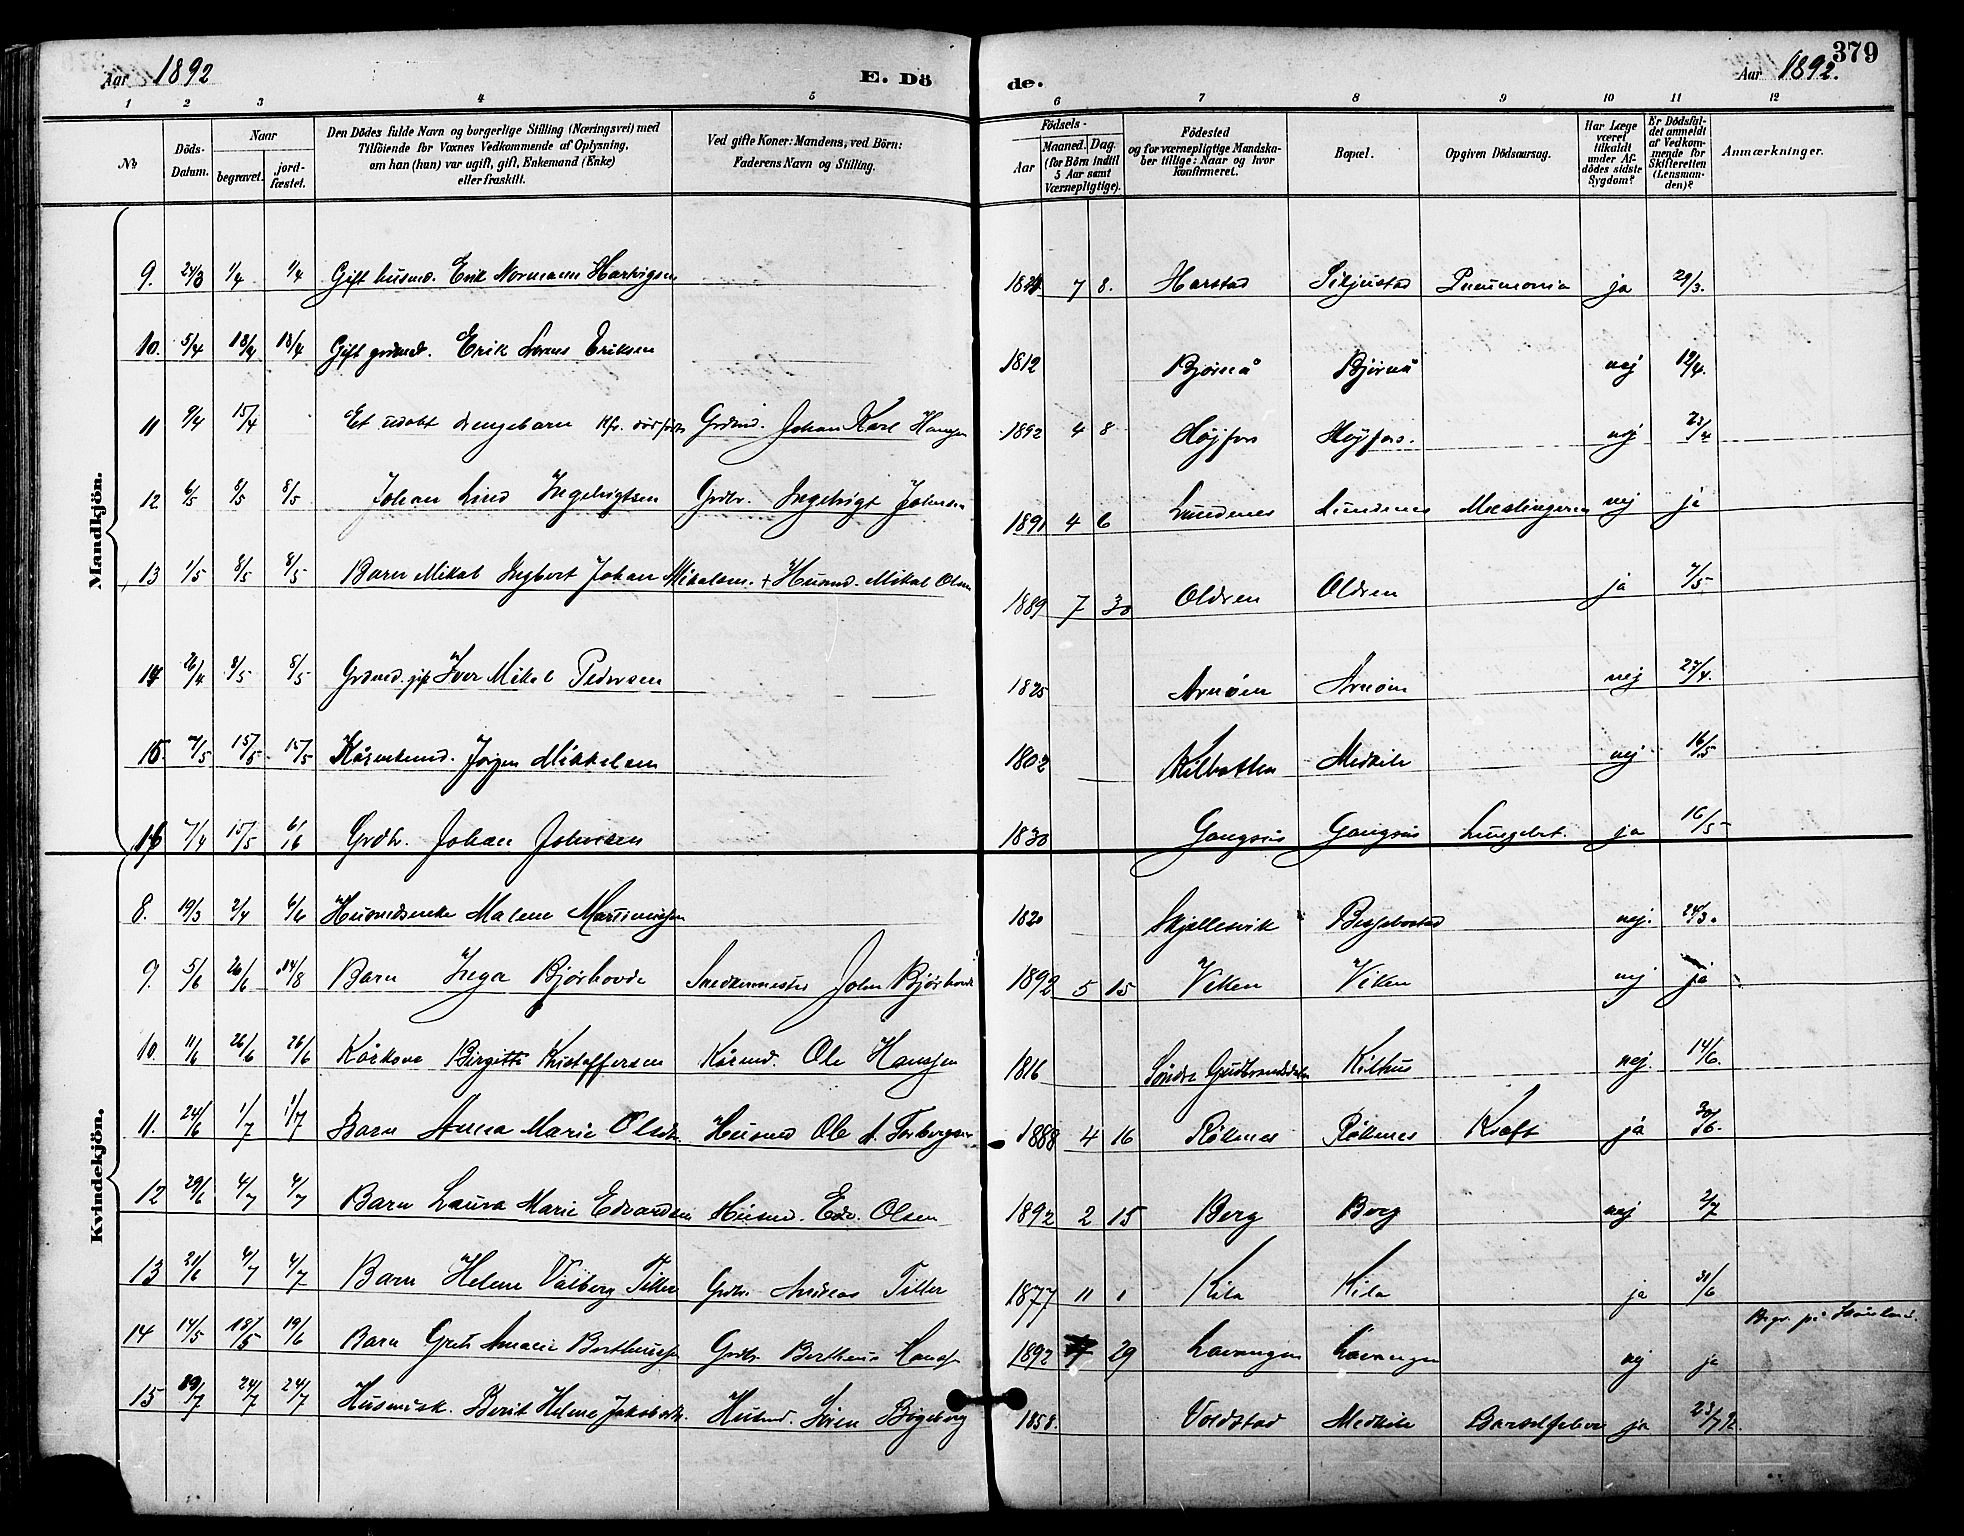 Aar 1892 E. Dö
de. Aar 1892. 379
1 2 3 4 5 6 7 8 9 10 11 12
No
Döds-Datum.
Naar
begravet.
jord-fæstet.
Den Dödes fulde Navn og borgerlige Stilling (Næringsvei) med
Tilföiende for Voxnes Vedkommende af Oplysning,
om han (hun) var ugift, gift, Enkemand (Enke)
eller fraskilt.
Ved gifte Koner: Mandens, ved Börn:
Faderens Navn og Stilling.
Födsels-
Aar
Maaned. Dag.
(for Börn indtil
5 Aar samt
Værnepligtige).
Födested
og for værnepligtige Mandska-
ber tillige: Naar og hvor
konfirmeret.
Bopæl.
Opgiven Dödsaarsag.
Har Læge
været
tilkaldt
under Af-
dödes sidste
Sygdom?
Er Dödsfal-
det anmeldt
af Vedkom-
mende for
Skifteretten
(Lensman-
den)?
Anmærkninger.
Mandkjön.
9. 24/3 1/4 1/4 Gift husmd. Erik Normann Hartvigsen 7 8. Harstad Siljustad Pneumonia ja 29/3.
10. 5/4 18/4 18/4 Gift grdmd. Erik Lorens Eriksen 1812 Bjørnå Bjørnå nej 12/4.
11 9/4 15/4 Et udøbt drengebarn Grdmd. Johan Karl Hansen 1892 4 8 Højfors Højfors. nej 23/4
12 6/5 8/5 8/5 Johan Lind Ingebrigtsen Grdbr. Ingebrigt Johnsen 1891 4 6 Lundenes Lundenes Meslingerne nej ja
13 1/5 8/5 8/5 Barn Mikal Ingbert Johan Mikalsen. + Husmd. Mikal Olsen 1889 7 30 Oldren Oldren ja 7/5
14 26/4 8/5 8/5 Grdmd. gift Iver Mikal Pedersen 1825 Arnøen Arnøen nej 27/4.
15. 7/5 15/5 15/5 Kårenkemd. Jørgen Mikkelsen 1802 Kilbotten Medkila nej 16/5
16 7/4 15/5 Grdbr. Johan Johnsen 1830 Gangsås Gangsås Lungebet. ja 16/5
Kvindekjön.
8. 19/3 2/4 6/4 Husmdsenke Malene Martinussen 1820 Skjellesvik nej. 24/3.
9. 5/6 26/6 14/8 Barn Inga Bjørhovde Snedkermester John Bjørhovde 1892 5 15 Viken Viken nej ja
10. 11/6 26/6 26/6 Kårkone Birgitte Kristoffersen Kårmd. Ole Hanssen 1816 Søndre Gudbrandsdalen Kilhus nej. 14/6.
11. 24/6 1/7 1/7 Barn Anna Marie Olsdtr. Husmd Ole A. Torbergsen 1888 4 16 Røkenes Røkenes Kræft ja 30/6.
12 29/6 4/7 4/7 Barn Laura Marie Edvardsen Husmd. Edv. Olsen 1892 2 15 Berg Berg nej 2/7
13 21/6 4/7 4/7 Barn Helene Valborg Tiller Grdbr. Andreas Tiller 1877 11 1 Kila Kila ja /6
14 14/5 18/5 19/6 Barn Grete Amalie Bertheussen Grdbr. Bertheus Hanssen 1892 29 Lavangen Lavangen nej ja Begr. på
15 /7 24/7 24/7 Husmdsk. Berit Helene Jakobsdtr. Husmd. Sören Bøgeberg 1858. Voldstad Medkila Barselfeber ja 23/7 92.